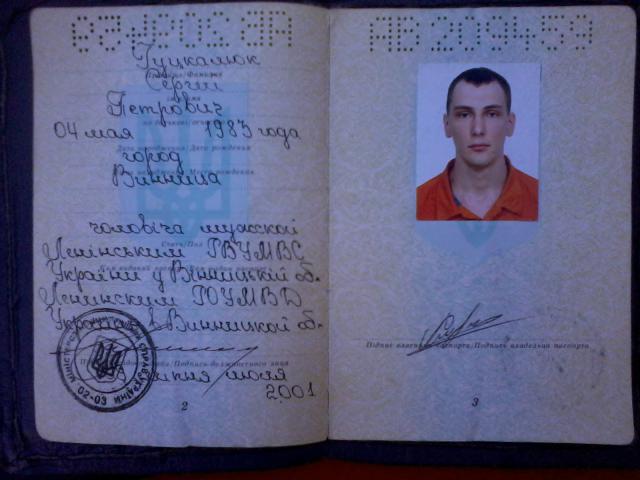 Гуцкалюк
Прізвище/Фамилия
Сергій
Петрович
по батькові/отчество
04 мая 1983 года
Дата народження/Дата рождения
город
Винница
чоловіча мужской
Стать/Пол
Ленінським РВУМВС
України у Вінницькій об.
Ленинским РОУМВД
Украины в Винницкой об.
Подпись должностного лица
июля
2001
02-03
2
АВ 209459
Підпис власника паспорта/Подпись владельца паспорта
3